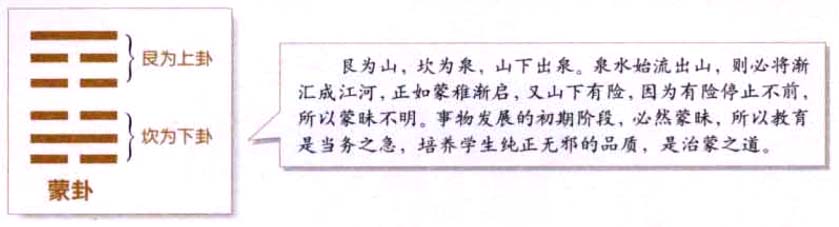 艮为上卦
坎为下卦
蒙卦
艮为山，坎为泉，山下出泉。泉水始流出山，则必将渐
汇成江河，正如蒙稚渐启，又山下有险，因为有险停止不前，
所以蒙昧不明。事物发展的初期阶段，必然蒙昧，所以教育
是当务之急，培养学生纯正无邪的品质，是治蒙之道。